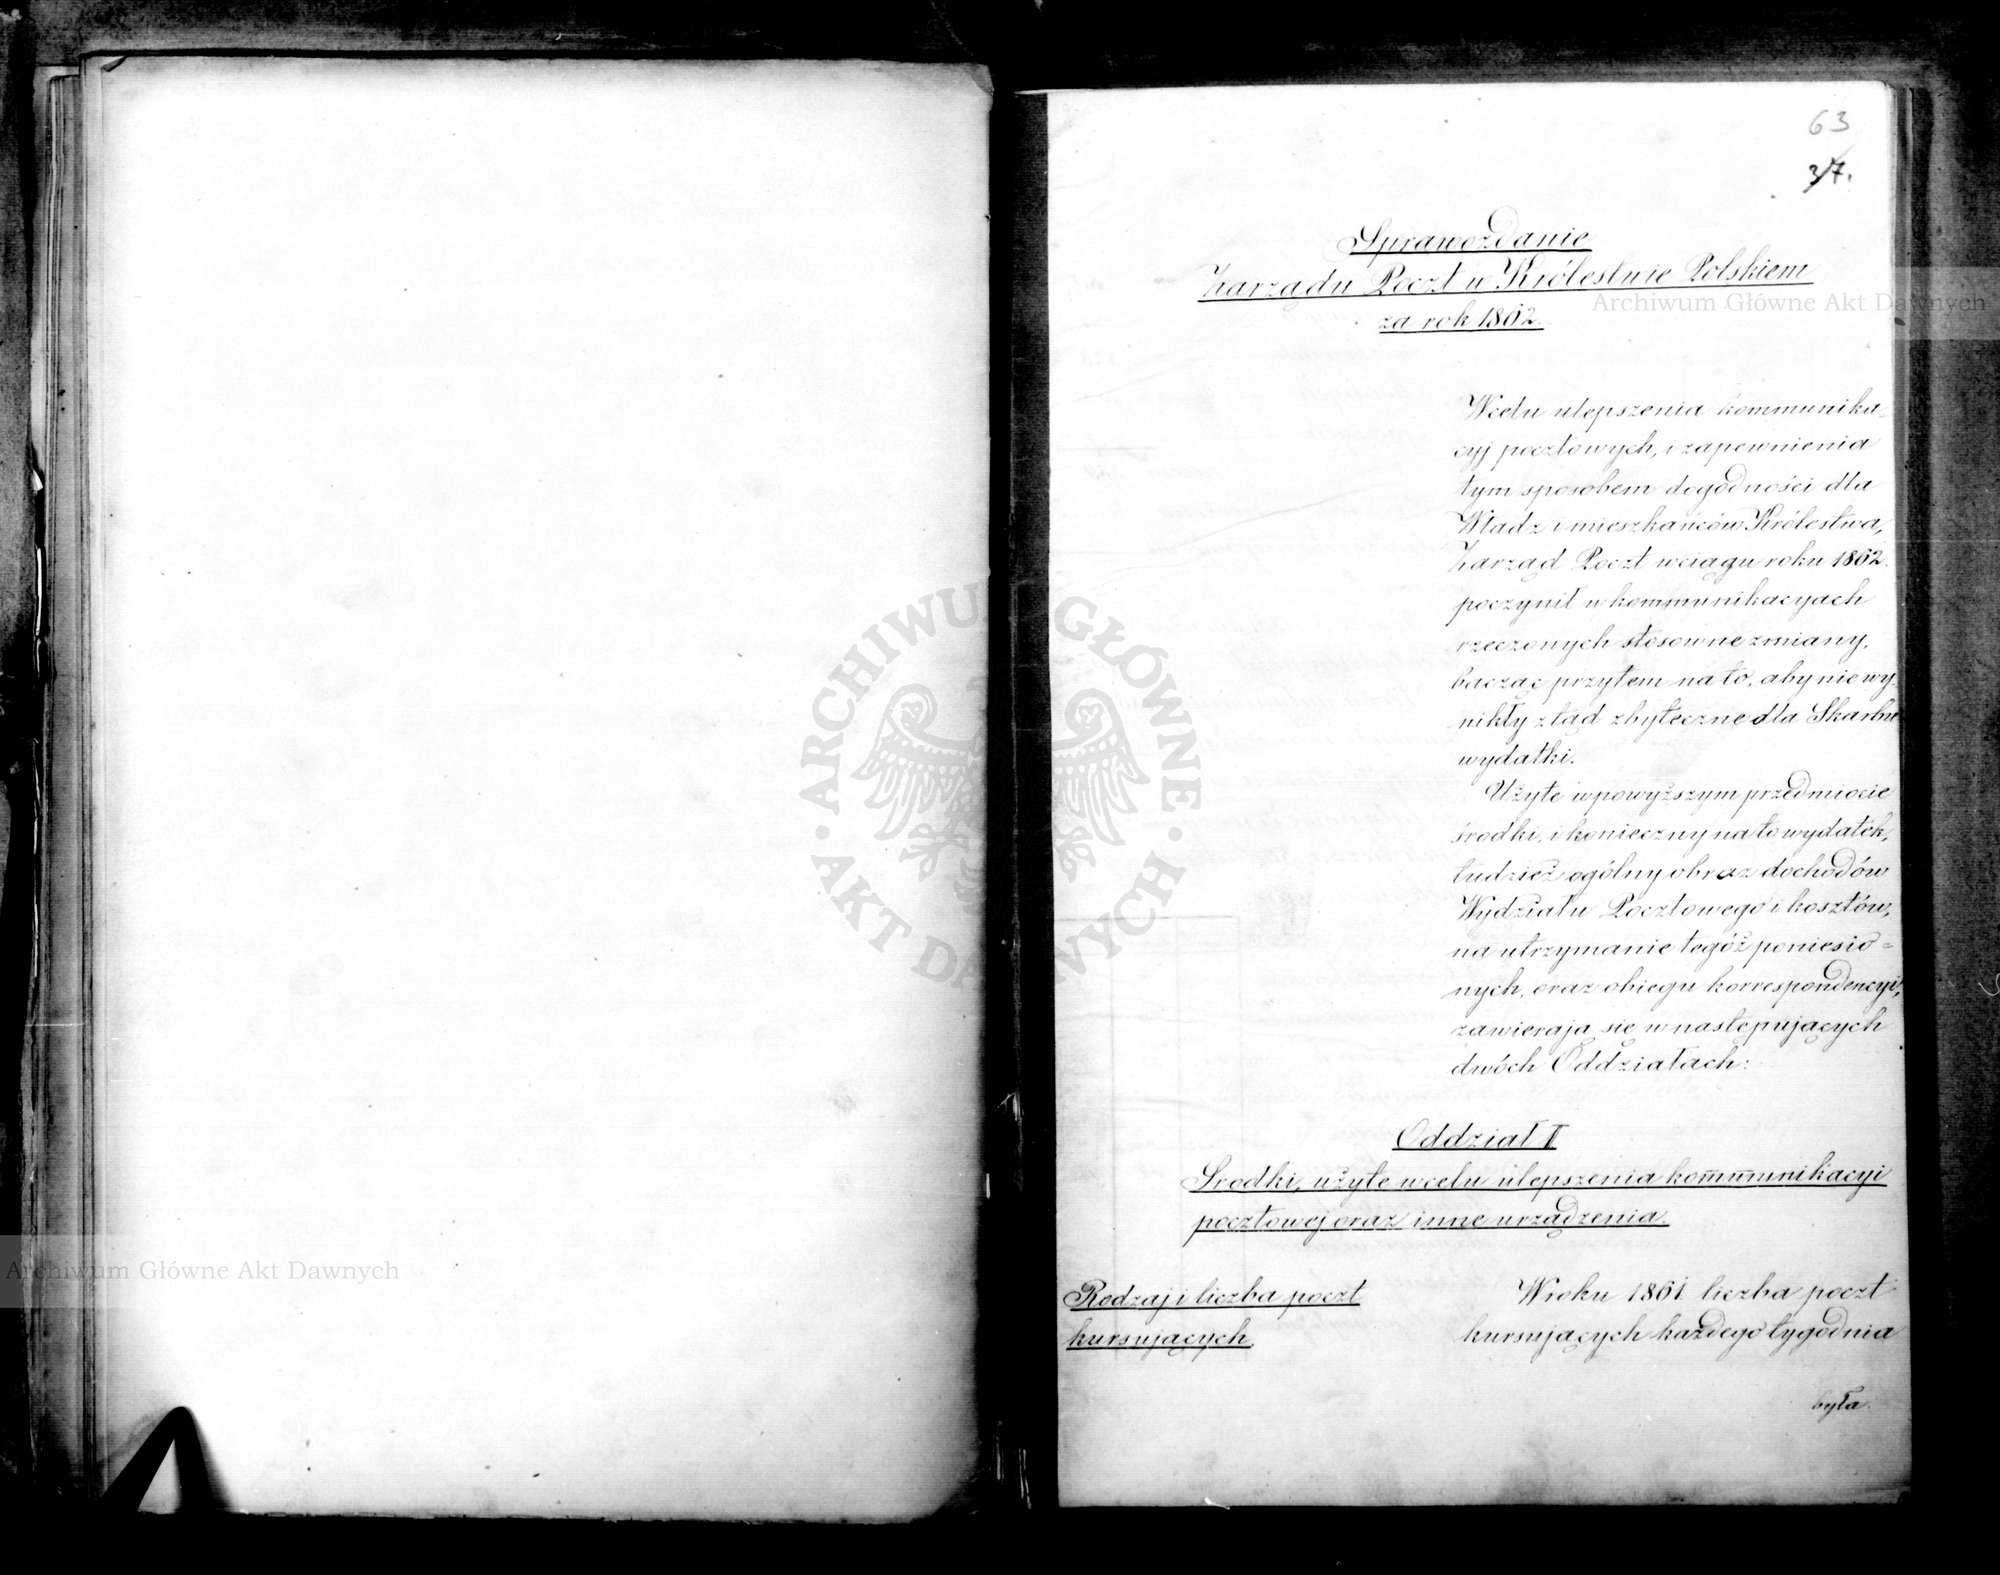 63
37.
Sprawozdanie
Zarządu Poczt w Królestwie Polskiem
za rok 1862.
W celu ulepszenia kommunika-
cyj pocztowych, i zapewnienia
tym sposobem dogodności dla
Władz i mieszkańców Królestwa,
Zarząd Poczt w ciągu roku 1862.
poczynił w kommunikacyach
rzeczonych stosowne zmiany,
bacząc przytem na to, aby nie wy-
nikły ztąd zbyteczne dla Skarbu
wydatki.
Użyte w powyższym przedmiocie
środki, i konieczny na to wydatek,
tudzież ogólny obraz dochodów
Wydziału Pocztowego i kosztów,
na utrzymanie tegóż poniesio=
nych, oraz obiegu korrespondencyi,
zawierają się w następujących
dwóch Oddziałach:
Oddział I
Srodki, użyte w celu ulepszenia kommunikacyi
pocztowej oraz inne urządzenia.
Rodzaj i liczba poczt
kursujących.
W roku 1861 liczba poczt
kursujących każdego tygodnia
była
Archiwum Główne Akt Dawnych
Archiwum Główne Akt Dawnych
ARCHIWUM GŁÓWNE
AKT DAWNYCH